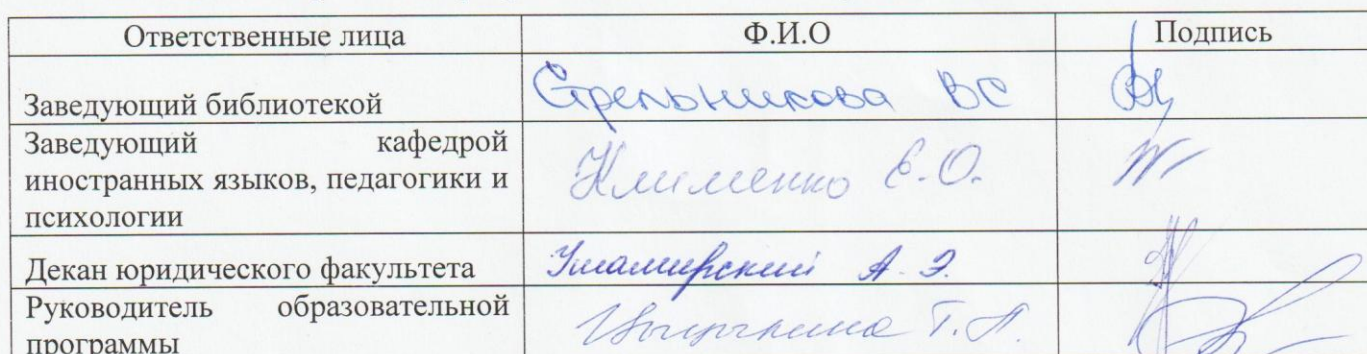 Ответственные лица Ф.И.О Подпись
Заведующий библиотекой Стрельникова ВС
Заведующий кафедрой
иностранных языков, педагогики и
психологии
Клименко Е.О.
Декан юридического факультета А.Э.
Руководитель образовательной
программы
Т.П.